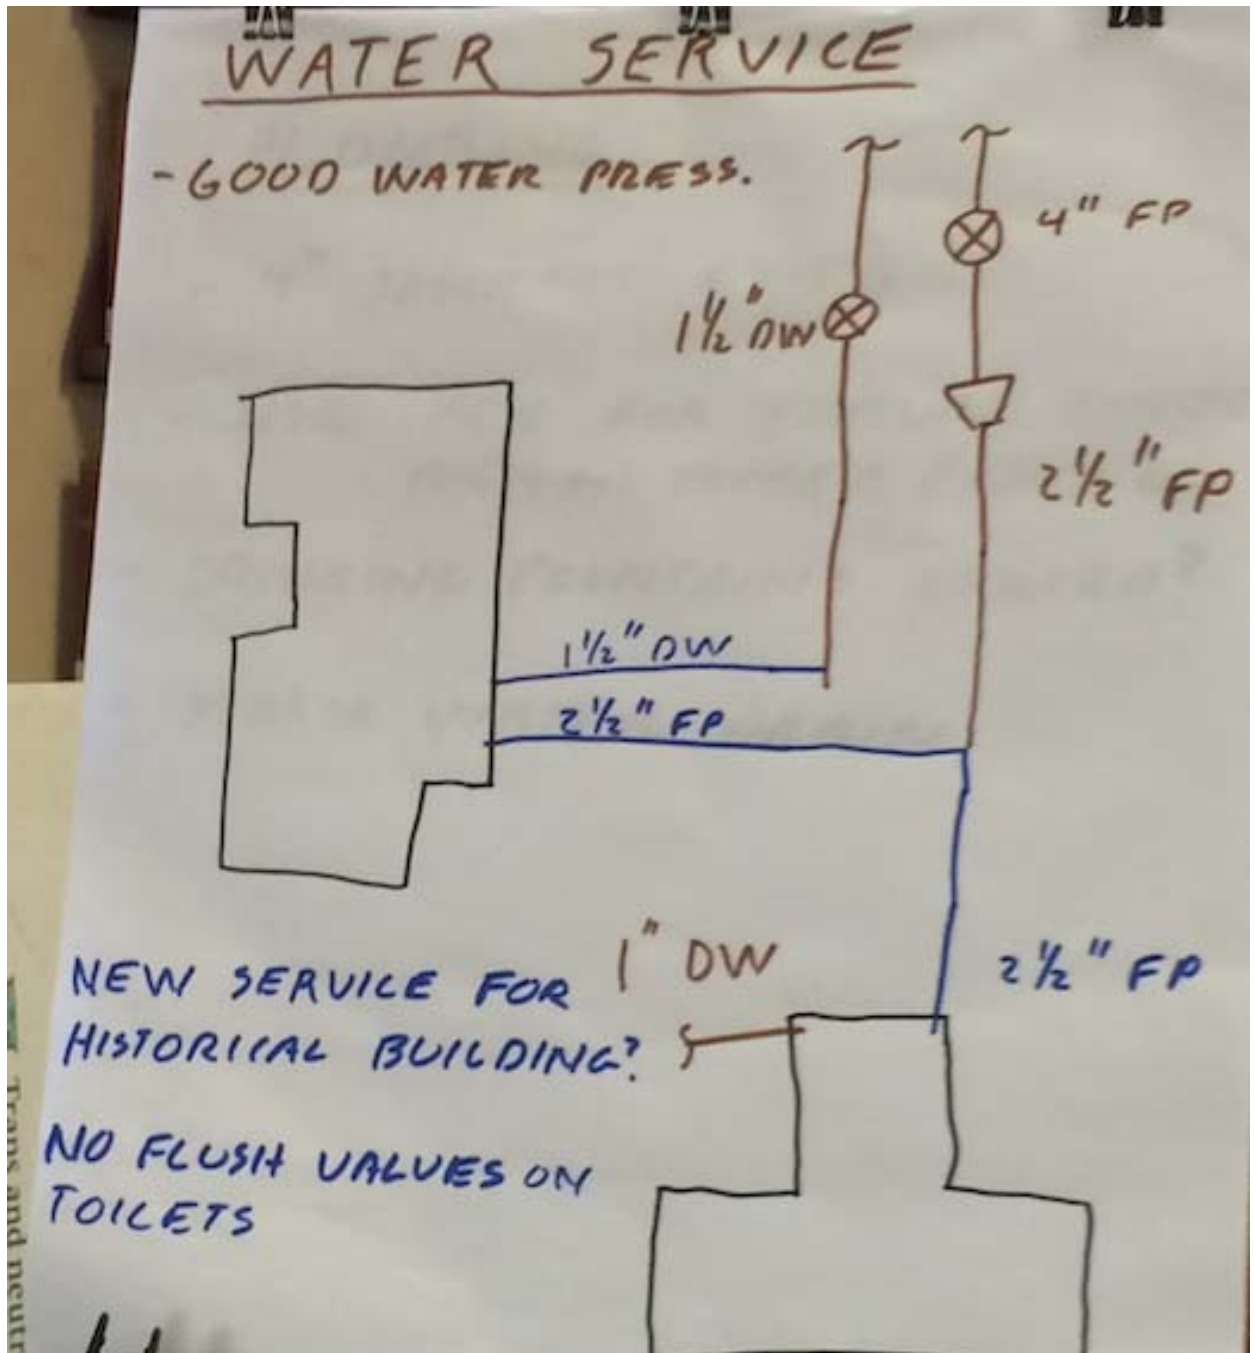 WATER SERVICE
- GOOD WATER PRESS.
4" FP
1½" DW
2½" FP
1½" DW
2½" FP
1" DW
2½" FP
NEW SERVICE FOR
HISTORICAL BUILDING?
NO FLUSH VALUES ON
TOILETS
Traps and neutr